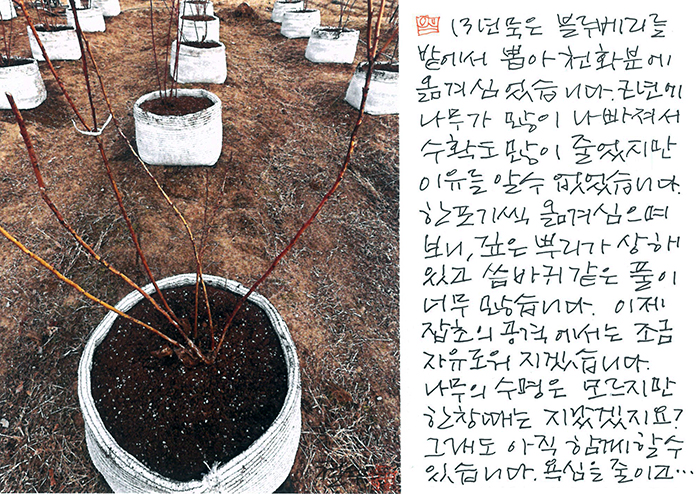 13년 묵은 블루베리를
밭에서 뽑아 천화분에
옮겨심었습니다. 근년에
나무가 많이 나빠져서
수확도 많이 줄었지만
이유를 알수 없었습니다.
한포기씩 옮겨심으며
보니, 깊은 뿌리가 상해
있고 씀바귀 같은 풀이
너무 많습니다. 이제
잡초의 공격에서는 조금
자유로워 지겠습니다.
나무의 수명은 모르지만
한창때는 지났겠지요?
그래도 아직 함께할 수
있습니다. 욕심을 줄이고…